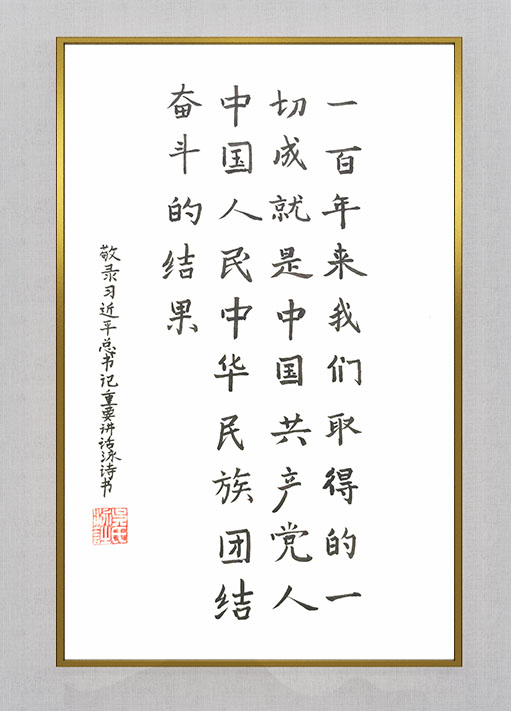 一百年来我们取得的一
切成就是中国共产党人
中国人民中华民族团结
奋斗的结果
敬录习近平总书记重要讲话泳诗书